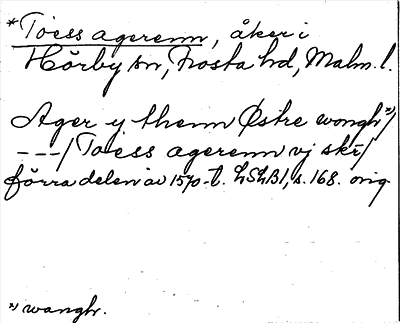 *Toess agerenn, åker i
Hörby sn, Frosta hd, Malm. l.
Ager ij thenn Østre wongh *)/
---/ Toess agerenn vj ski/
förra delen av 1570-t. LSLB1, s. 168. orig.
*) wangh.